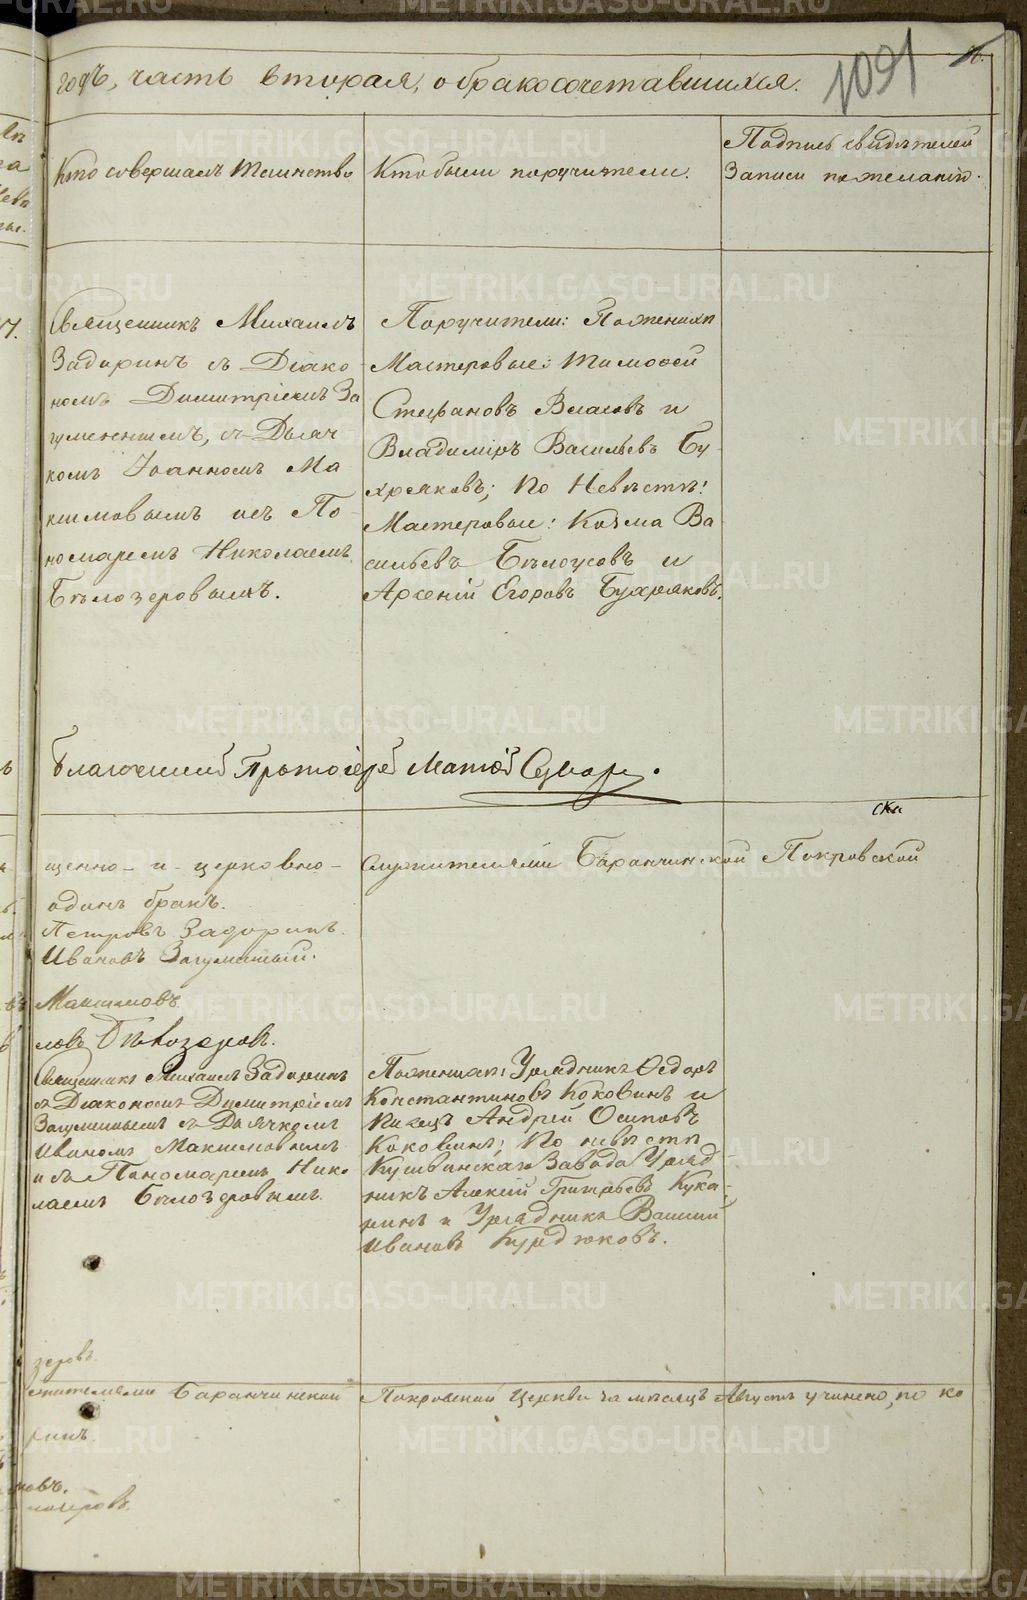 годъ, часть вторая, о бракосочетавшихся.
1091
Кто совершалъ Таинство
Кто были поручители.
Подпись свидѣтелей
Записи по желанію.
Священникъ Михаилъ
Задоринъ съ Діако-
номъ Димитріемъ За
гуменнымъ, съ Дьяч-
комъ Іоанномъ Ма
ксимовымъ и съ По-
номаремъ Николаемъ
Бѣлозеровымъ.
Поручители: По женихѣ
Мастеровые: Тимофей
Стефановъ Власовъ и
Владиміръ Васильевъ Бу-
хряковъ; По Невѣстѣ:
Мастеровые: Козма Ва-
сильевъ Бѣлоусовъ и
Арсеній Егоровъ Бухряковъ.
Благочинный Протоіерей Матѳей
щенно- и- церковно-
служителями Баранчинской Покровской
одинъ бракъ.
Петровъ Задоринъ.
Ивановъ Загуменный.
Максимовъ
лаевъ Бѣлозеровъ.
Священникъ Михаилъ Задоринъ
съ Діакономъ Димитріемъ
Загуменнымъ съ Дьячкомъ
Иваномъ Максимовымъ
и съ Пономаремъ Нико
лаемъ Бѣлозеровымъ.
По женихѣ: Урядникъ Ѳедоръ
Константиновъ Коковинъ и
Писецъ Андрей Осиповъ
Коковинъ; По невѣстѣ
Кушвинскаго Завода Уряд-
никъ Алексій Григорьевъ Кука-
ринъ и Урядникъ Василій
Ивановъ Курдюковъ.
зеровъ
жителями Баранчинской
Покровской Церкви за мѣсяцъ Августъ учинено, по ко
ринъ.
новъ.